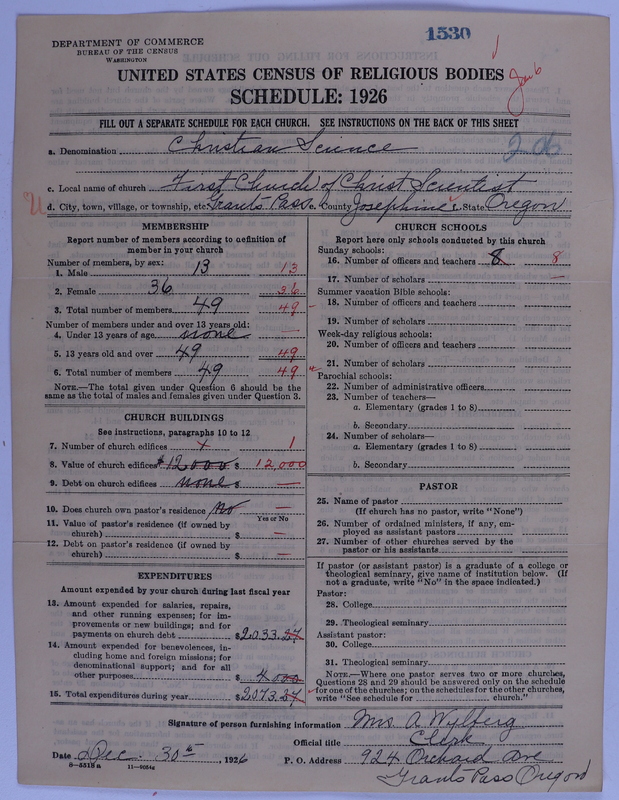 1530
DEPARTMENT OF COMMERCE
BUREAU OF THE CENSUS
WASHINGTON
UNITED STATES CENSUS OF RELIGIOUS BODIES
SCHEDULE: 1926
FILL OUT A SEPARATE SCHEDULE FOR EACH CHURCH. SEE INSTRUCTIONS ON THE BACK OF THIS SHEET
a. Denomination Christian Science
c. Local name of church First Church of Christ Scientist
d. City, town, village, or township, etc. Grants Pass e. County Josephine f. State Oregon
MEMBERSHIP
Report number of members according to definition of
member in your church
Number of members, by sex:
1. Male 13 13
2. Female 36 36
3. Total number of members 49 49
Number of members under and over 13 years old:
4. Under 13 years of age none —
5. 13 years old and over 49 49
6. Total number of members 49 49
NOTE.—The total given under Question 6 should be the
same as the total of males and females given under Question 3.
CHURCH BUILDINGS
See instructions, paragraphs 10 to 12
7. Number of church edifices 1
8. Value of church edifices $12000 $ 12,000
9. Debt on church edifices none $ —
10. Does church own pastor's residence No —
Yes or No
11. Value of pastor's residence (if owned by
church) $ —
12. Debt on pastor's residence (if owned by
church) $ —
EXPENDITURES
Amount expended by your church during last fiscal year
13. Amount expended for salaries, repairs,
and other running expenses; for im-
provements or new buildings; and for
payments on church debt $2033.27
14. Amount expended for benevolences, in-
cluding home and foreign missions; for
denominational support; and for all
other purposes $ 40.00
15. Total expenditures during year $2073.27
CHURCH SCHOOLS
Report here only schools conducted by this church
Sunday schools:
16. Number of officers and teachers 8 8
17. Number of scholars —
Summer vacation Bible schools:
18. Number of officers and teachers
19. Number of scholars
Week-day religious schools:
20. Number of officers and teachers
21. Number of scholars
Parochial schools:
22. Number of administrative officers
23. Number of teachers—
a. Elementary (grades 1 to 8)
b. Secondary
24. Number of scholars—
a. Elementary (grades 1 to 8)
b. Secondary
PASTOR
25. Name of pastor
(If church has no pastor, write "None")
26. Number of ordained ministers, if any, em-
ployed as assistant pastors
27. Number of other churches served by the
pastor or his assistants
If pastor (or assistant pastor) is a graduate of a college or
theological seminary, give name of institution below. (If
not a graduate, write "No" in the space indicated.)
Pastor:
28. College
29. Theological seminary
Assistant pastor:
30. College
31. Theological seminary
NOTE.—Where one pastor serves two or more churches,
Questions 28 and 29 should be answered only on the schedule
for one of the churches; on the schedules for the other churches,
write "See schedule for church."
Signature of person furnishing information Mrs A Wylberg
Official title Clerk
Date Dec. 30th, 1926 P. O. Address 924 Orchard Ave
8-5518a 11-9054a Grants Pass Oregon